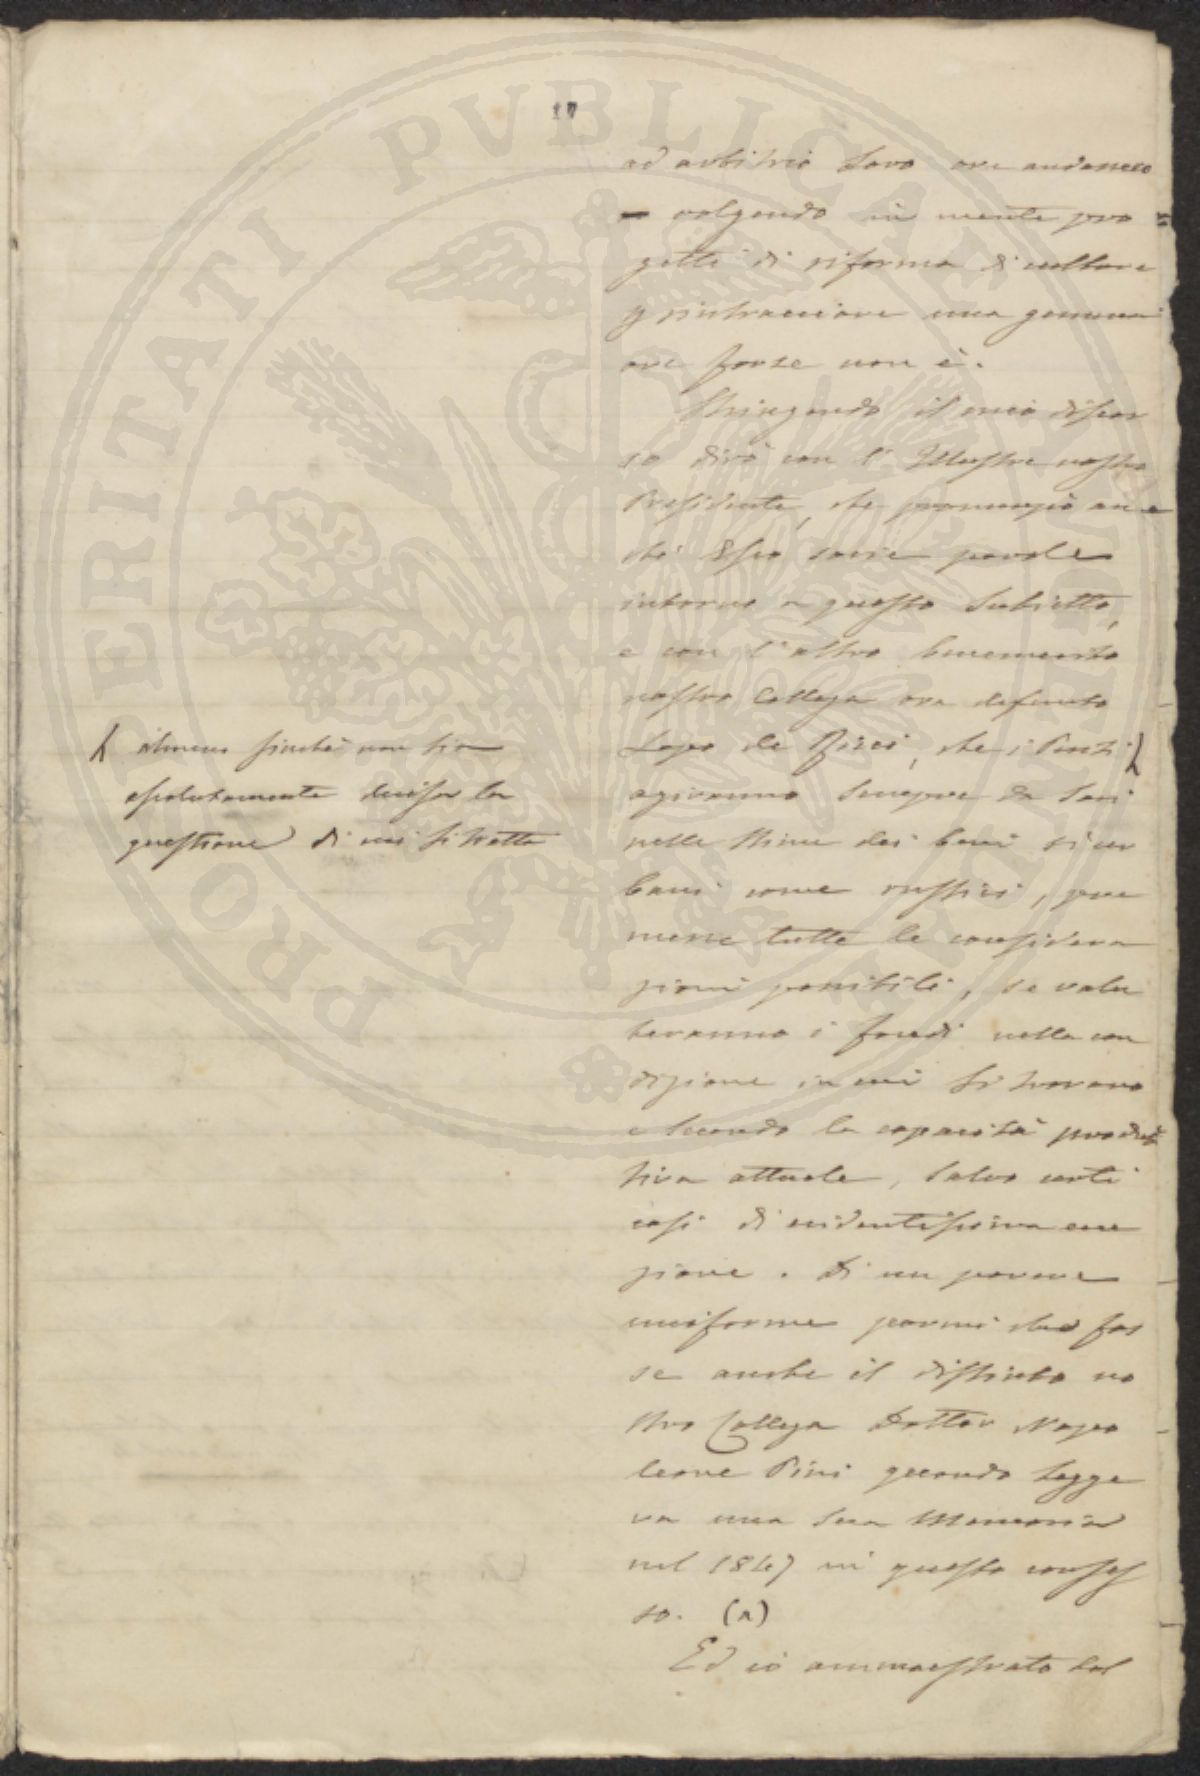 17
ad arbitrio loro ove andassero
volgendo in mente pro
getti di riforma di culture
p rintracciare una gemma
ove forse non è.
Stringendo il mio discor
so dirò con l' Illustre nostro
Presidente, che pronunziò an
ch' Esso savie parole
intorno a questo Subietto,
e con l'altro benemerito
nostro Collega ora defunto
Lapo de Ricci, che i Periti
agiranno sempre da Savi
nelle stime dei beni sì ur
bani come rustici, pre
messe tutte le considera
zioni possibili, se valu
teranno i fondi nella con
dizione in cui si trovano
e secondo la capacità produt
tiva attuale, salvo certi
casi di evidentissima ecce
zione. Di un parere
uniforme parmi che fos
se anche il distinto no
stro Collega Dottor Napo
leone Pini quando legge
va una sua Memoria
nel 1847 in questo conses
so. (a)
Ed io ammaestrato dal
almeno finché non sia
assolutamente decisa la
questione di cui si tratta
PROSPERITATI PVBLICAE AVGENDAE